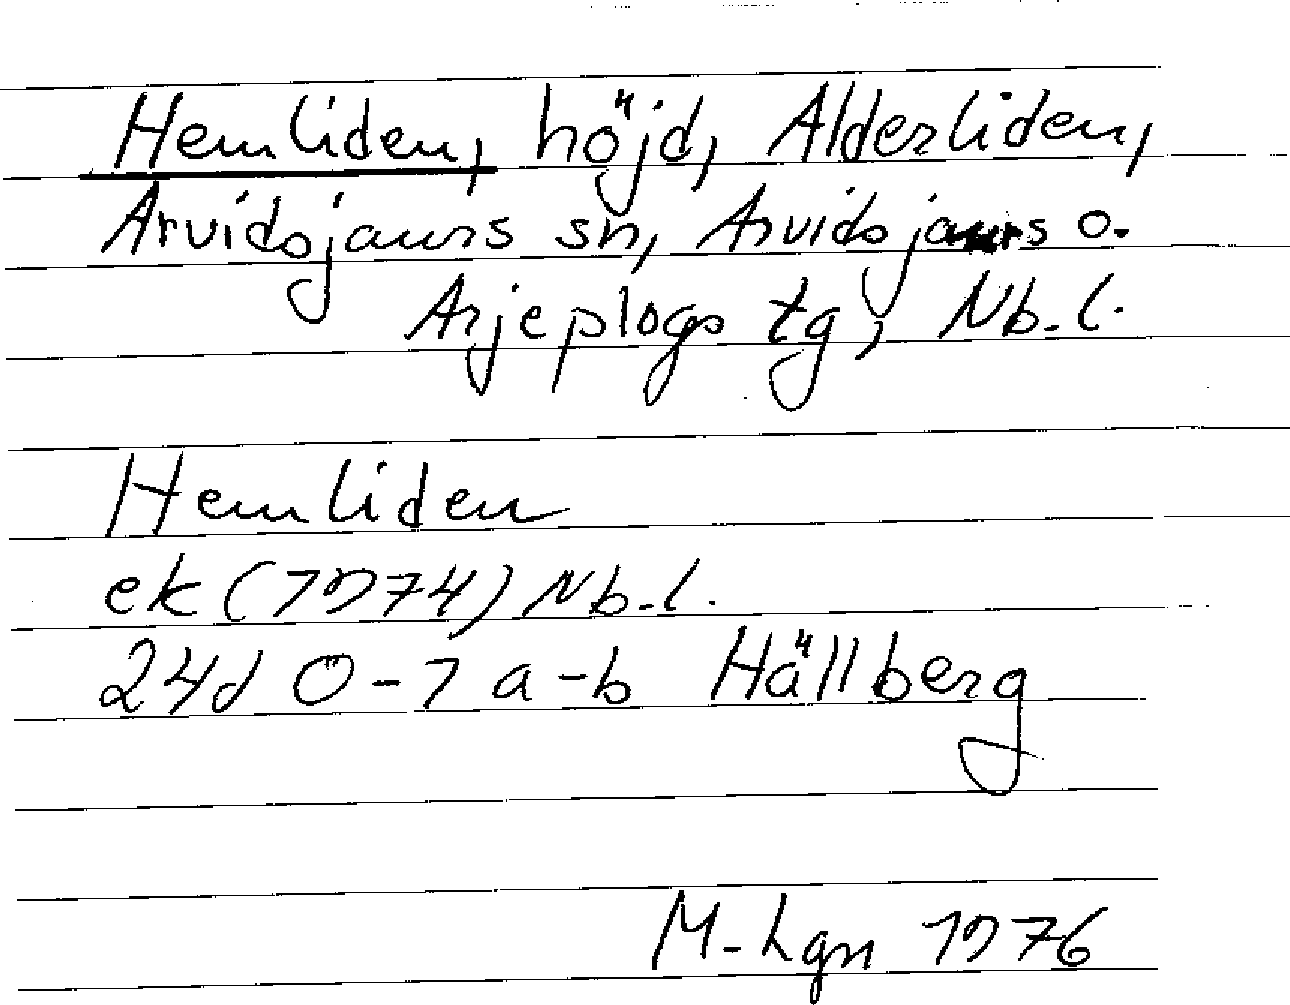 Hemliden, höjd, Alderliden,
Arvidsjaurs sn, Arvidsjaurs o.
Arjeplogs tg, Nb.l.
Hemliden
ek (1974) Nb.l.
24d 0-1 a-b Hällberg
M-Lgn 1976